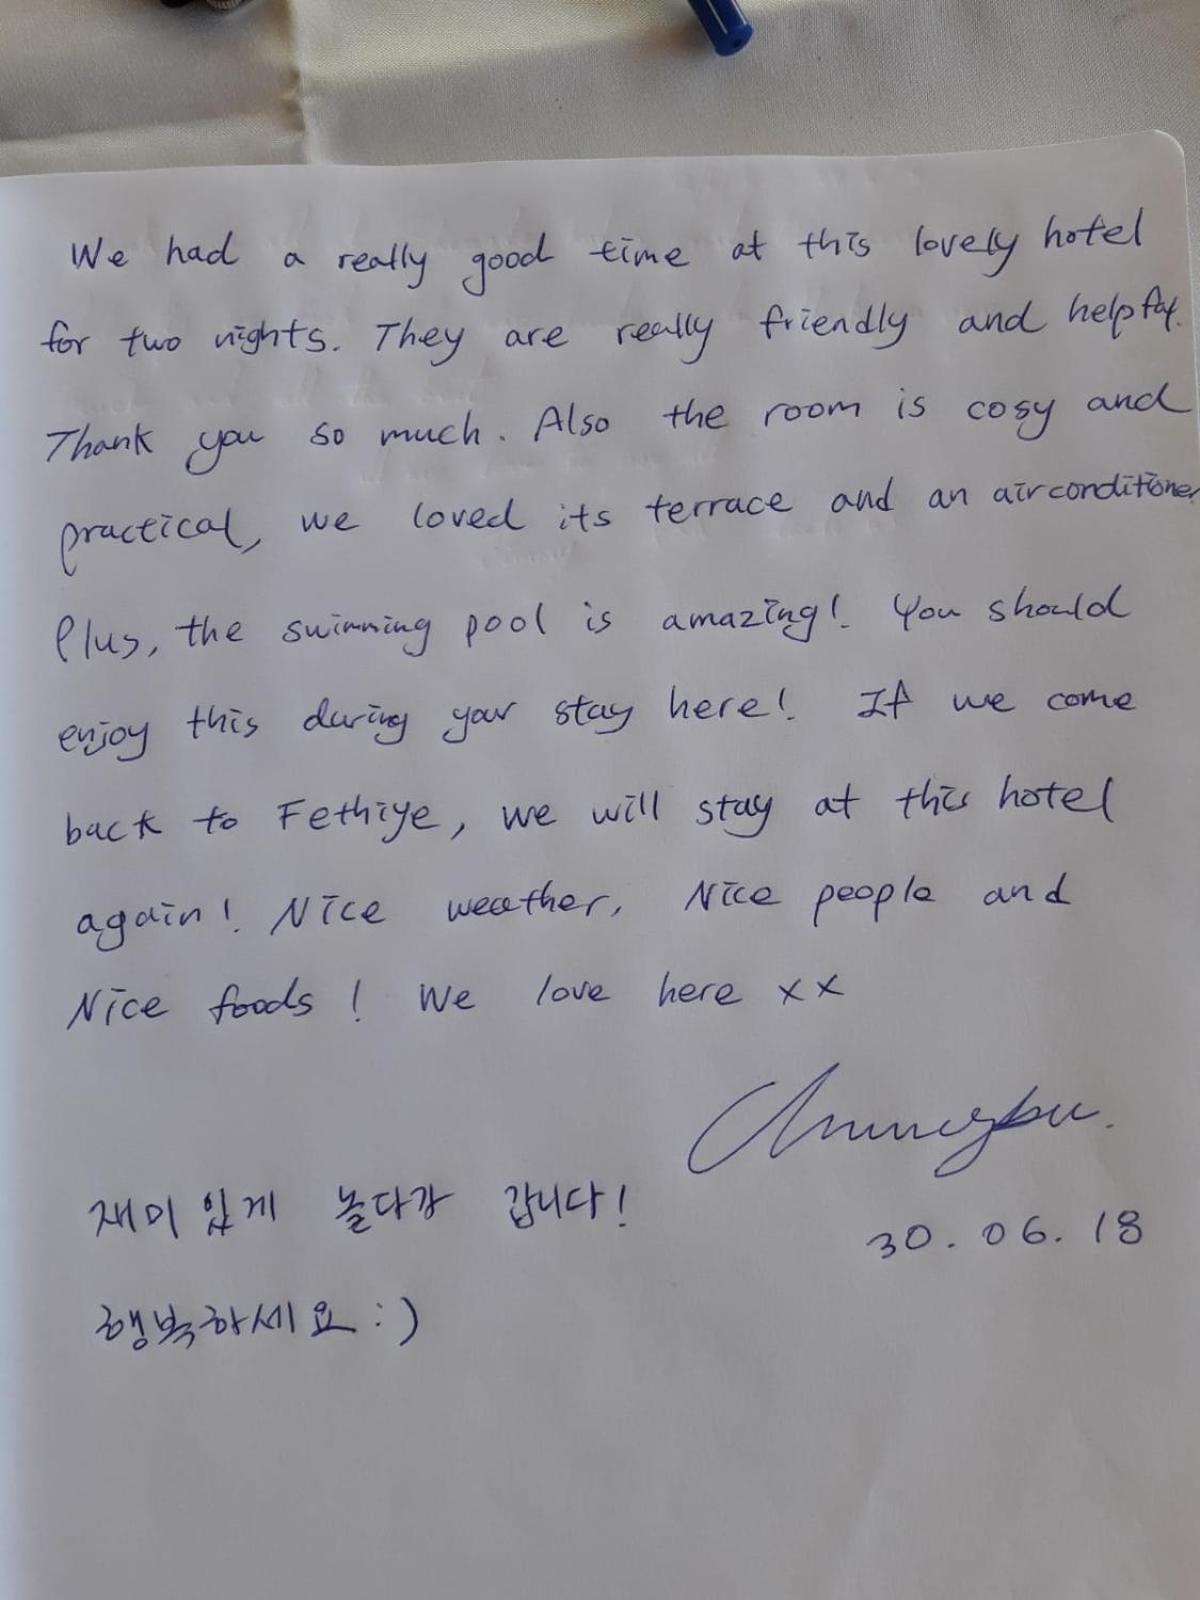 We had a really good time at this lovely hotel
for two nights. They are really friendly and helpful.
Thank you so much. Also the room is cosy and
practical, we loved its terrace and an airconditioner
Plus, the swimming pool is amazing! You should
enjoy this during your stay here! If we come
back to Fethiye, we will stay at this hotel
again! Nice weather, Nice people and
Nice foods! We love here xx
재미있게 놀다가 갑니다!
30. 06. 18
행복하세요 :)